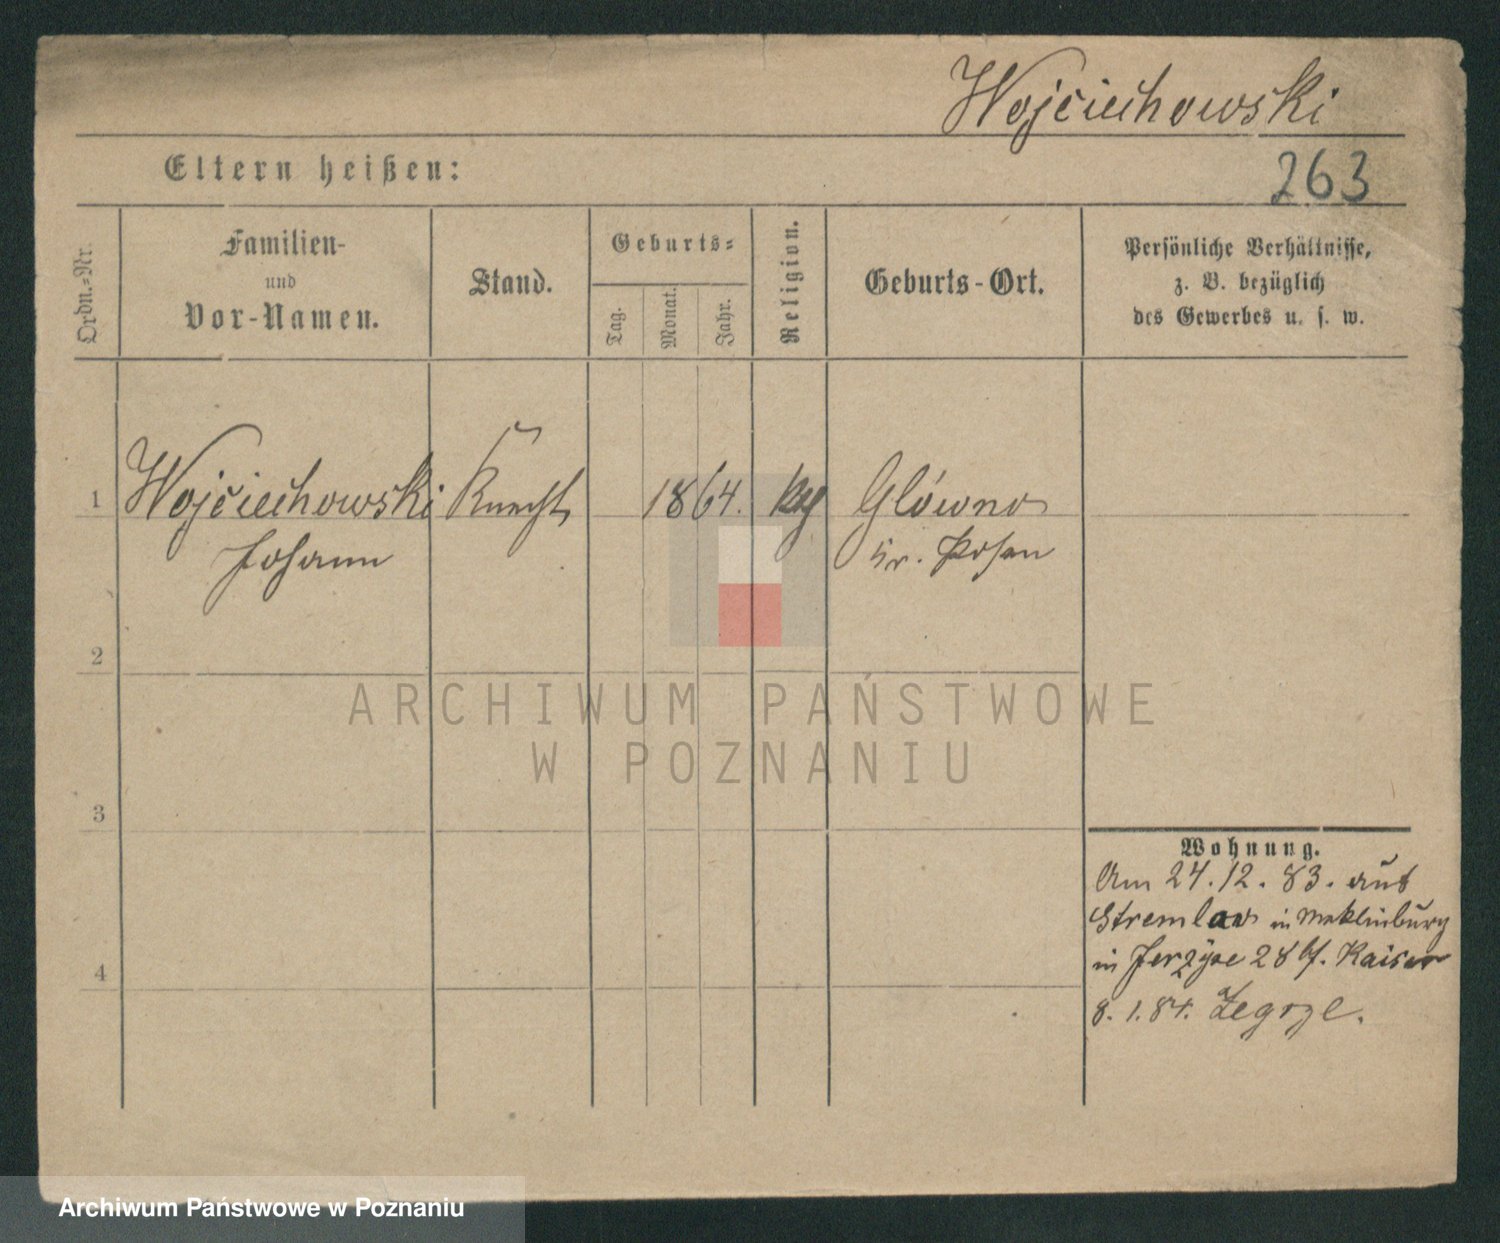 Wojciechowski
Eltern heißen:
263
Ordn.-Nr.
Familien-
und
Vor-Namen.
Stand.
Geburts-
Tag.
Monat.
Jahr.
Religion.
Geburts-Ort.
Persönliche Verhältnisse,
z. B. bezüglich
des Gewerbes u. s. w.
1 Wojciechowski Knecht 1864. Główno
Johann Kr. Posen
2
3
4
Wohnung.
Am 24.12.83. aus
in Meklinburg
in 28 Kaiser
8.1.84. Zegrze.
ARCHIWUM PAŃSTWOWE
W POZNANIU
Archiwum Państwowe w Poznaniu